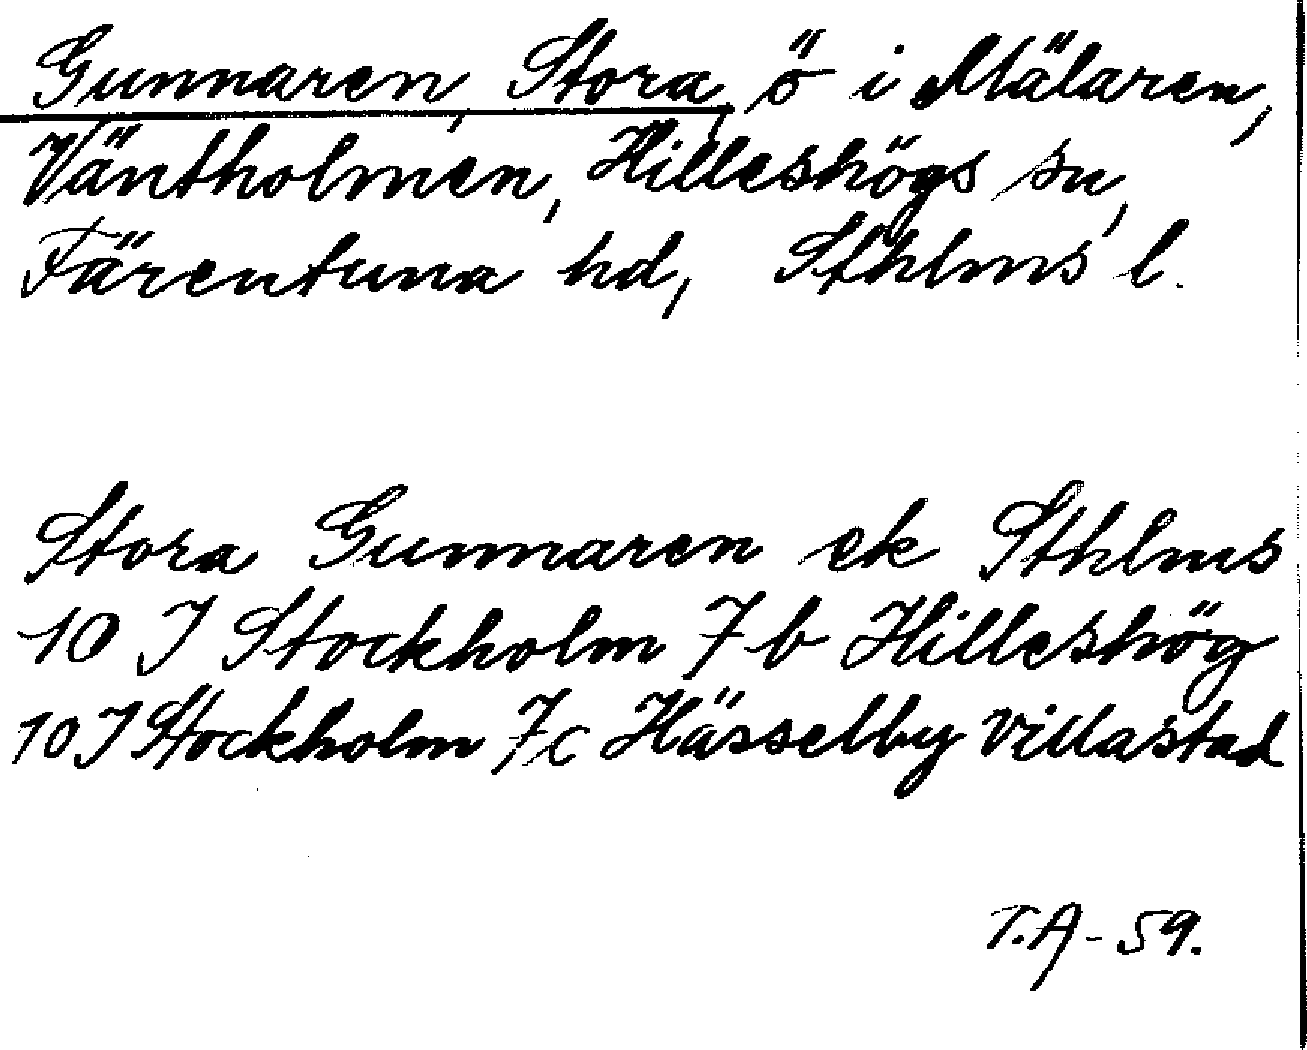 Gunnaren, Stora, ö i Mälaren,
Väntholmen, Hilleshögs sn,
Färentuna hd, Sthlms l.
Stora Gunnaren ek Sthlms
10 I Stockholm 7 b Hilleshög
10 I Stockholm 7c Hässelby Villastad
T.A-59.